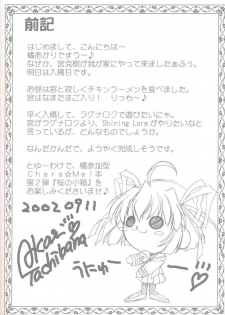 前記
はじめまして、こんにちは～
橘あかりですう～♪
なぜか、宮克樹が我が家にやって来ましたぁふぅ。
明日は入稿日です。
お昼は宮と寂しくチキンラーメンを食べました。
宮はなまたまご入り！　りっち～♪
早く入稿して、ラグナロクで遊びたいにゃ。
宮がラグナロクより、Shining Loreがやりたいなと
言っているが、どんなものでしょうか。
なんだかんだで、ようやく完成しそうです。
とゆーわけで、橘参加型
Chara☆Mel本
第2弾『桜の小箱』を
お楽しみくださいませ♪
2002 09 11
Akari
Tachibana
うにゅー